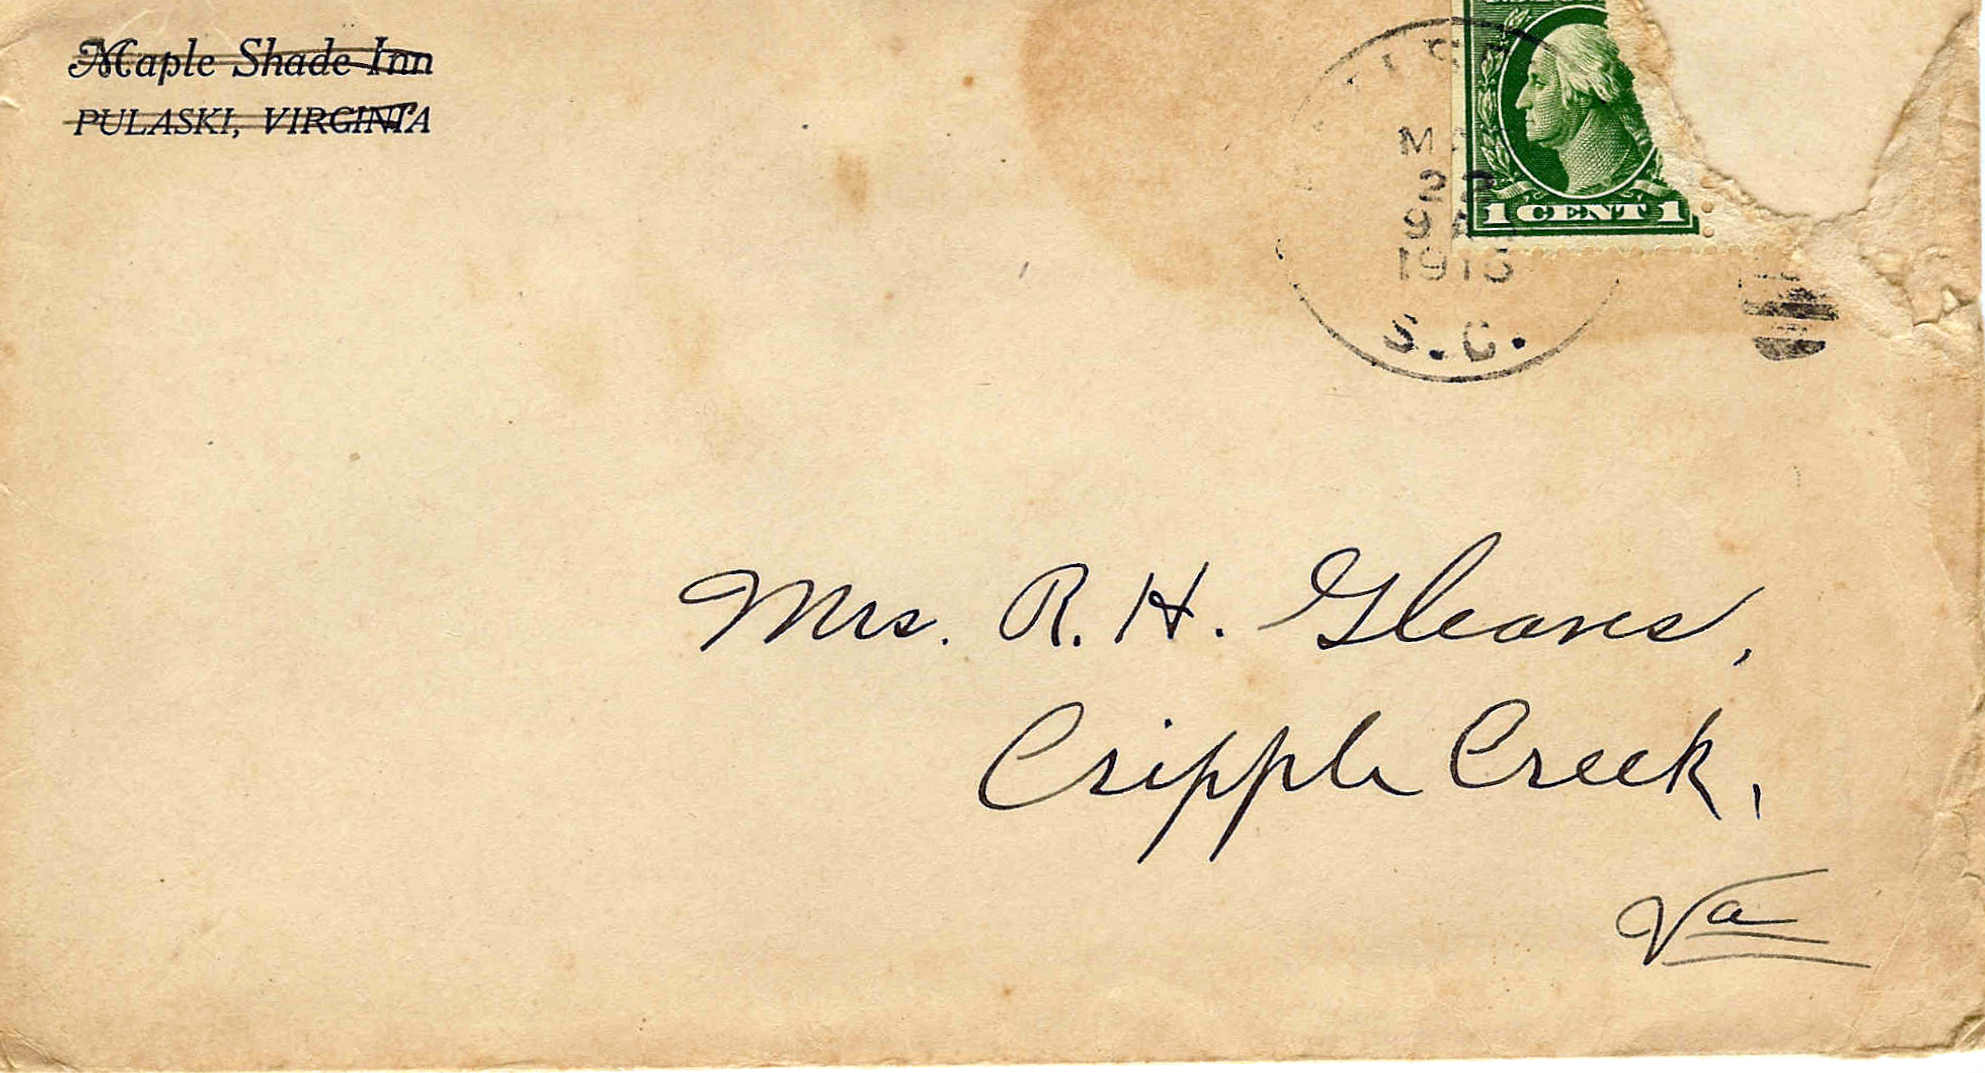 Maple Shade Inn
PULASKI, VIRGINIA
22
1915
S.C.
1 CENT 1
Mrs. R. H. Gleaves,
Cripple Creek,
Va